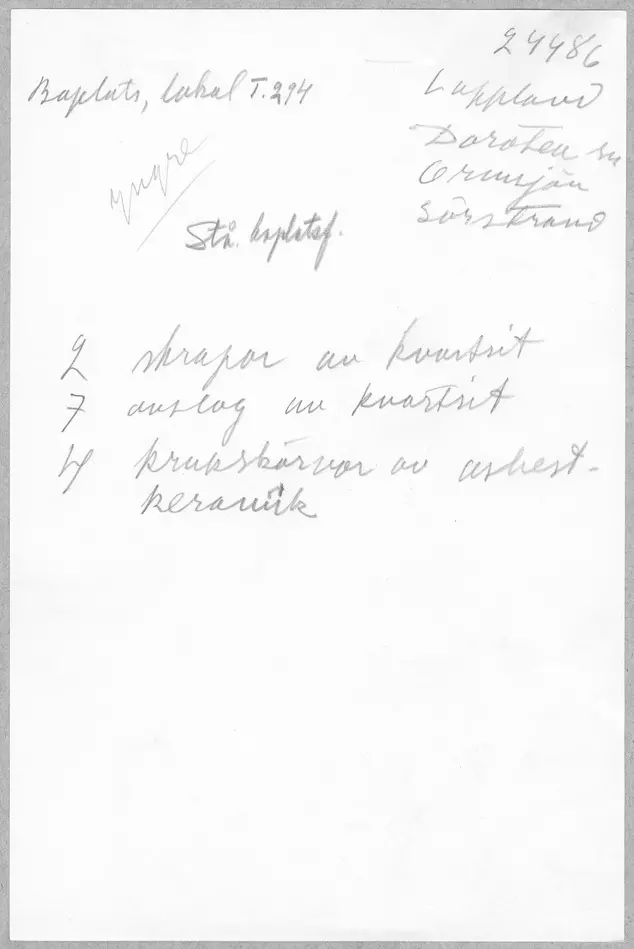 24486
Boplats, lokal T.294
Lappland
Dorotea sn
Ormsjön
Sörstrand
yngre
Stå. boplatsf.
2 skrapor av kvartsit
7 avslag av kvartsit
4 krukskärvor av asbest-
keramik